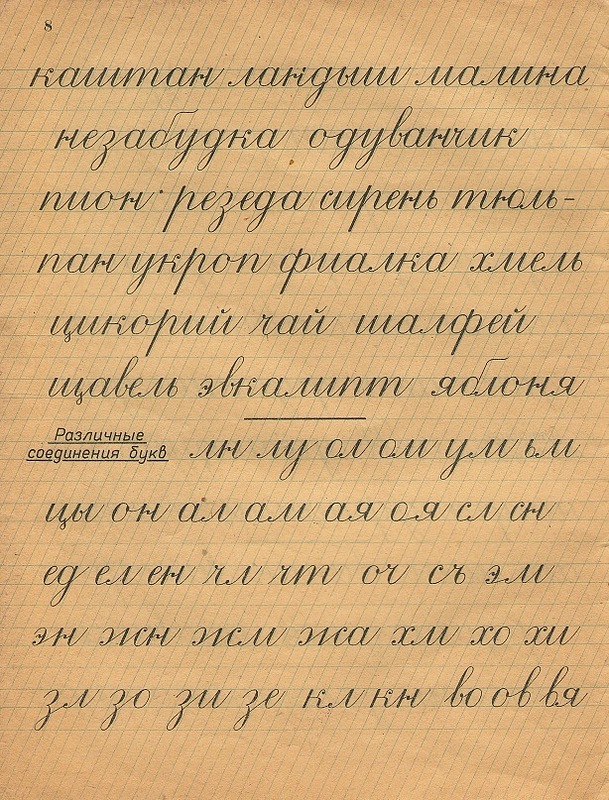 8
каштан ландыш малина
незабудка одуванчик
пион резеда сирень тюль-
пан укроп фиалка хмель
цикорий чай шалфей
щавель эвкалипт яблоня
Различные
соединения букв
лн лу ол ом ум ьм
цы он ал ам ая оя сл сн
ед ел ен чл чт оч съ эм
эн жн жм жа хм хо хи
зл зо зи зе кл кн во ов вя